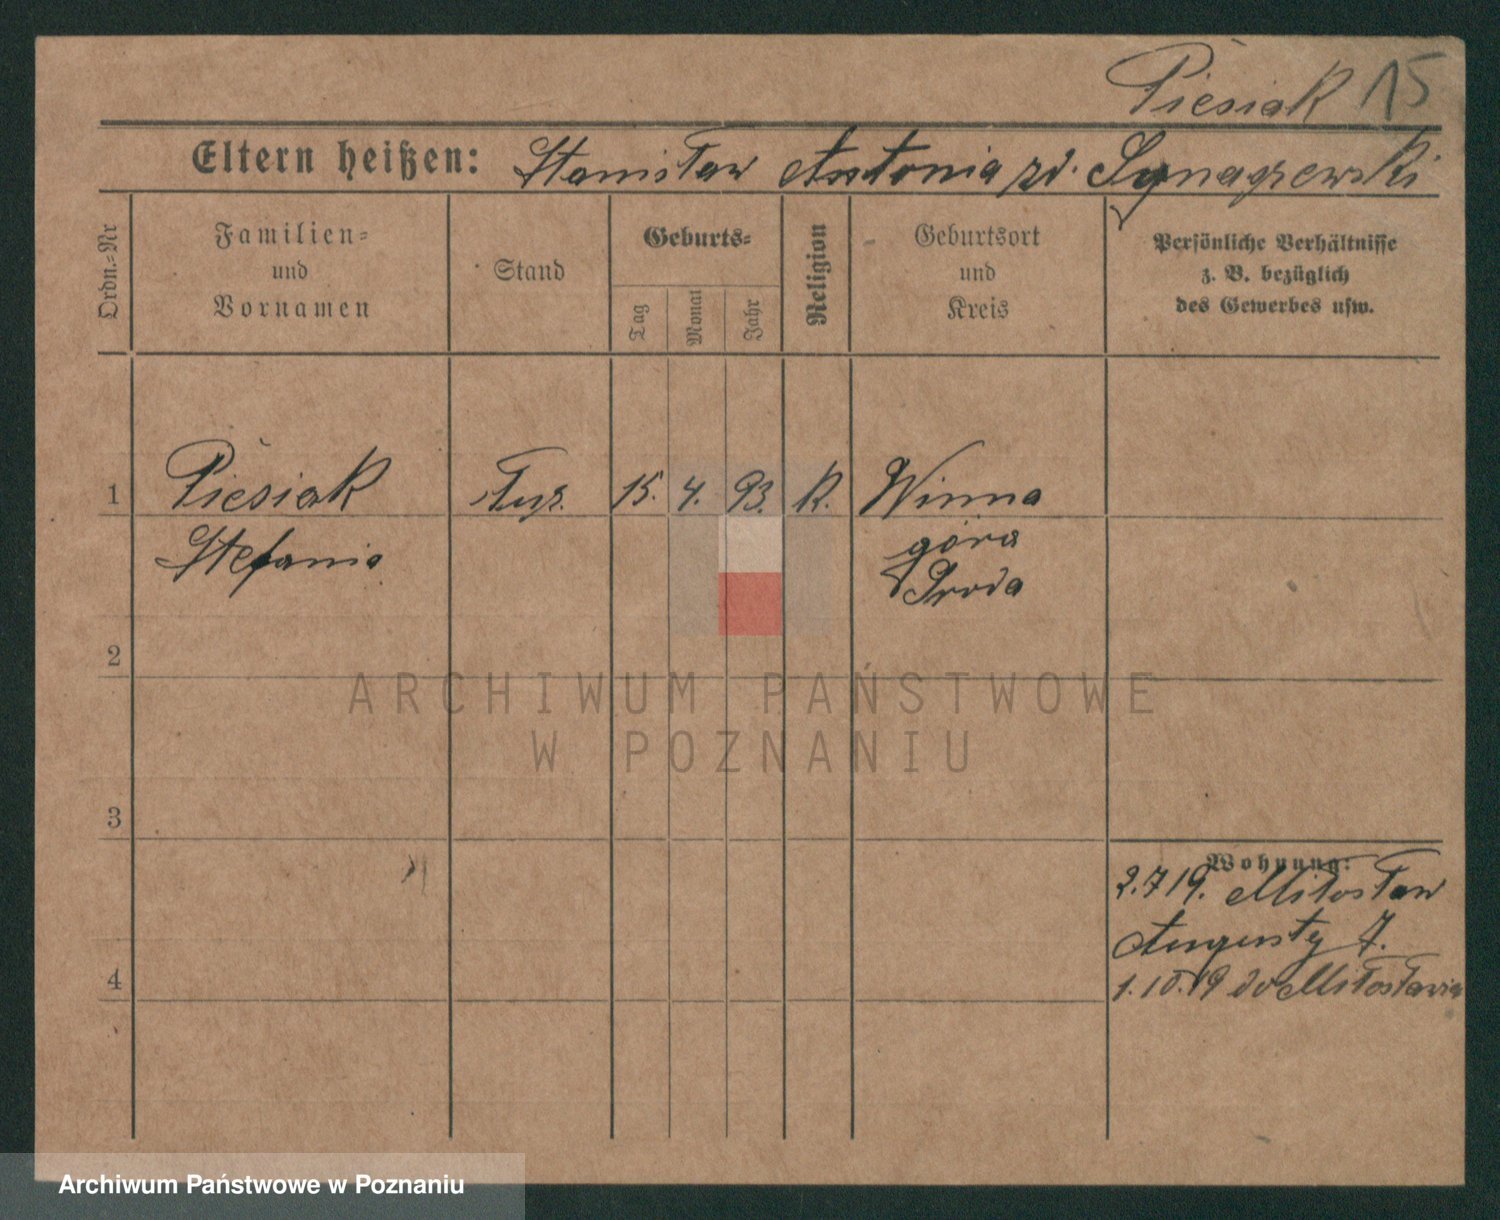 Piesiak 15
Eltern heißen: Stanisław Antonia zd.
Ordn.-Nr
Familien- und Vornamen
Stand
Geburts-
Tag
Monat
Jahr
Religion
Geburtsort und Kreis
Persönliche Verhältnisse
z. B. bezüglich
des Gewerbes usw.
1 Piesiak 15. 4. 93. K. Winna
Stefania góra
Środa
2
3
Wohnung:
2.7 19. Miłosław
Augusty 7.
4 1.10.19 do Miłosławia
ARCHIWUM PAŃSTWOWE
W POZNANIU
Archiwum Państwowe w Poznaniu